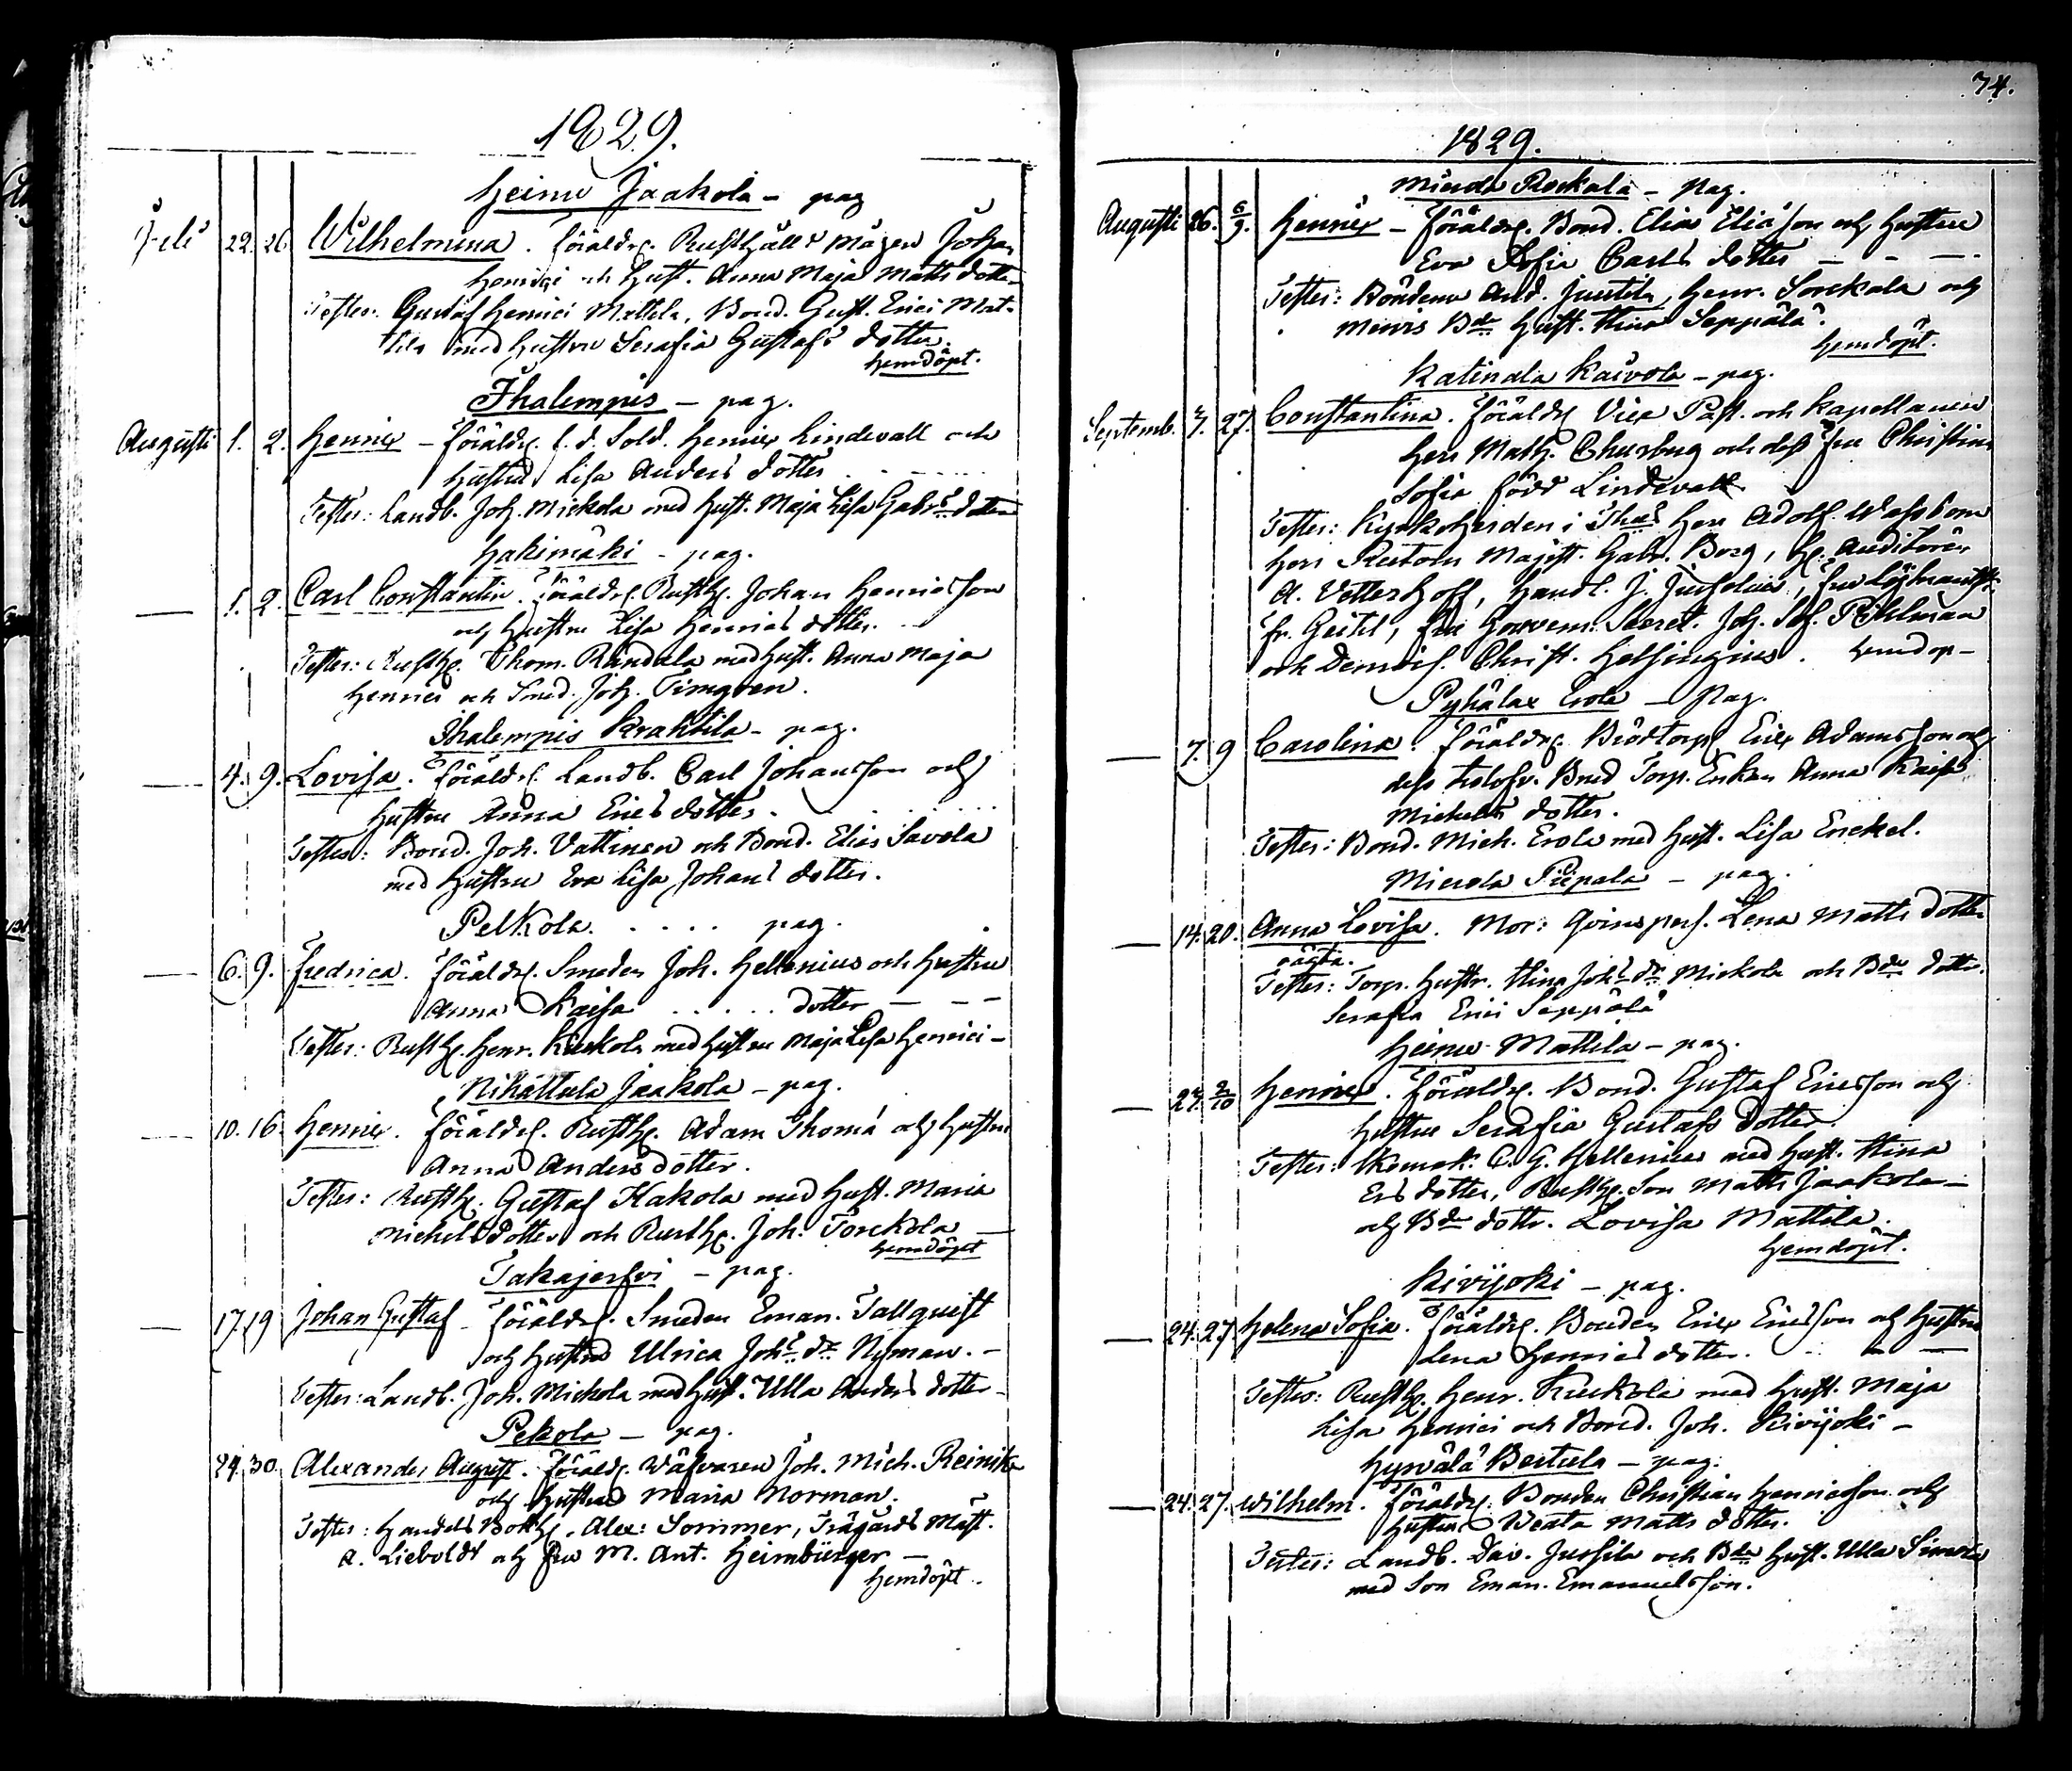 1829.
Heinu Jaakola - pag
Juli 22. 26 Wilhelmina. Föräldr. Rusth. Mågen Johan
Henrici och Hust. Anna Maja Matts dotter
Testes: Gustaf Henrici Mattila, Bond. Gust. Erici Mat-
tila med hustru Serafia Gustafs dotter.
hemdöpt.
Ihalempis - pag.
Augusti 1. 2. Henric - föräldr. f. d. Sold. Henric Lindevall och
hustru Lisa Anders dotter
Testes: Landb. Joh. Mickola med Hust. Maja Lisa Gabr:s dotter
Hakimäki - pag.
— 1. 2. Carl Constantin. Föräldr. Rusth. Johan Henricsson
och hustru Lisa Henrics dotter.
Testes: Rusth. Thom. Randala med Hust. Anna Maja
Henrici och Smed. Joh. Timgren.
Ihalempis Krahtila - pag.
— 4. 9. Lovisa. Föräldr. Landb. Carl Johansson och
hustru Anna Erics dotter.
Testes: Bond. Joh. Vattinen och Bond. Elias Savola
med hustru Eva Lisa Johans dotter.
Pelkola. . . . . pag.
— 6. 9. Fredrica. Föräldr. Smeden Joh. Hellenius och hustru
Anna Kaisa . . . . . dotter — — —
Testes: Rusth. Henr. Kuckola med hustru Maja Lisa Henrici -
Nihattula Jaakola - pag.
— 10. 16. Henric. föräldr. Rusth. Adam Thomæ och hustru
Anna Anders dotter.
Testes: Rusth. Gustaf Kakola med Hust. Maria
Michels dotter och Rusth. Joh. Torckola —
hemdöpt
Takajersvi - pag.
— 17. 19 Johan Gustaf - föräldr. Smeden Eman. Tallquist
och hustru Ulrica Joh:s dr Nyman. -
Testes: Landb. Joh. Mickola med Hust. Ulla Anders dotter -
Pekola - pag.
24. 30. Alexander August. föräldr. Wäfvaren Joh. Mich. Reinike
och hustru Maria Norman.
Testes: Handels Bokh. Alex: Sommer, Trägårds Mäst.
A. Lieboldt och fru M. Ant. Heimbürger —
hemdöpt.
74.
1829.
Mierola Rockala - pag.
Augusti 26. 6/9. Henric - föräldr. Bond. Elias Eliæson och hustru
Eva Sofia Carls dotter — - —.
Testes: Bönderne And. Juutila, Henr. Sorckala och
Hust. Stina Seppälä.
hemdöpt.
Katinala Kaivola - pag.
Septemb. 7. 27. Constantina. föräldr. Vice Past. och Kapellanen
Herr Math. Churberg och dess fru Christina
Sofia född Lindevall.
Testes: Kyrkoherden i Herr Adolf
Herr Rectorn Magist. Gabr. Borg, H. Auditören
A. Vetterhoff, Handl. J. Juselius, fru
fr. Geitel, fru Gouvern. Secret. Joh. Sof. Pihlman
och Demois. Christ. Helsingius. hemdöp-
Pyhälax Erola - Pag.
— 7. 9 Carolina. föräldr. Brödtorp. Eric Adamsson och
dess Enkan Anna Kaisa
Michels dotter.
Testes: Bond. Mich. Erola med Hust. Lisa Enckel.
Mierola Piipala - pag.
— 14. 20. Anna Lovisa. Mor: Qvinspers. Lena Matts dotter
oägta.
Testes: Torp. Hustr. Stina Joh:s dr Mickola och Bde dottr.
Serafia Erici Seppälä
Heinu Mattila - pag.
— 27. 2/10 Henric. föräldr. Bond. Gustaf Ericsson och
hustru Serafia Gustafs dotter.
Testes: Skomak. C. G. Hellenius med Hust. Stina
Ers dotter, Rusth. Son Matts Jaakola -
och Bde dottr. Lovisa Mattila.
hemdöpt.
Kivijoki - pag.
— 24. 27. Helena Sofia. föräldr. Bonden Eric Ericsson och hustru
Lena Henrics dotter. — —
Testes: Rusth. Henr. Kuckola med Hust. Maja
Lisa Henrici och Bond. Joh. Kivijoki -
Hyrvälä Bertula - pag.
— 24. 27. Wilhelm. föräldr. Bonden Christian Henricsson och
hustru Beata Matts dotter.
Testes: Landb. Dav. Jussila och Bde Hust. Ulla Simola
med Son Eman. Emanuelsson.